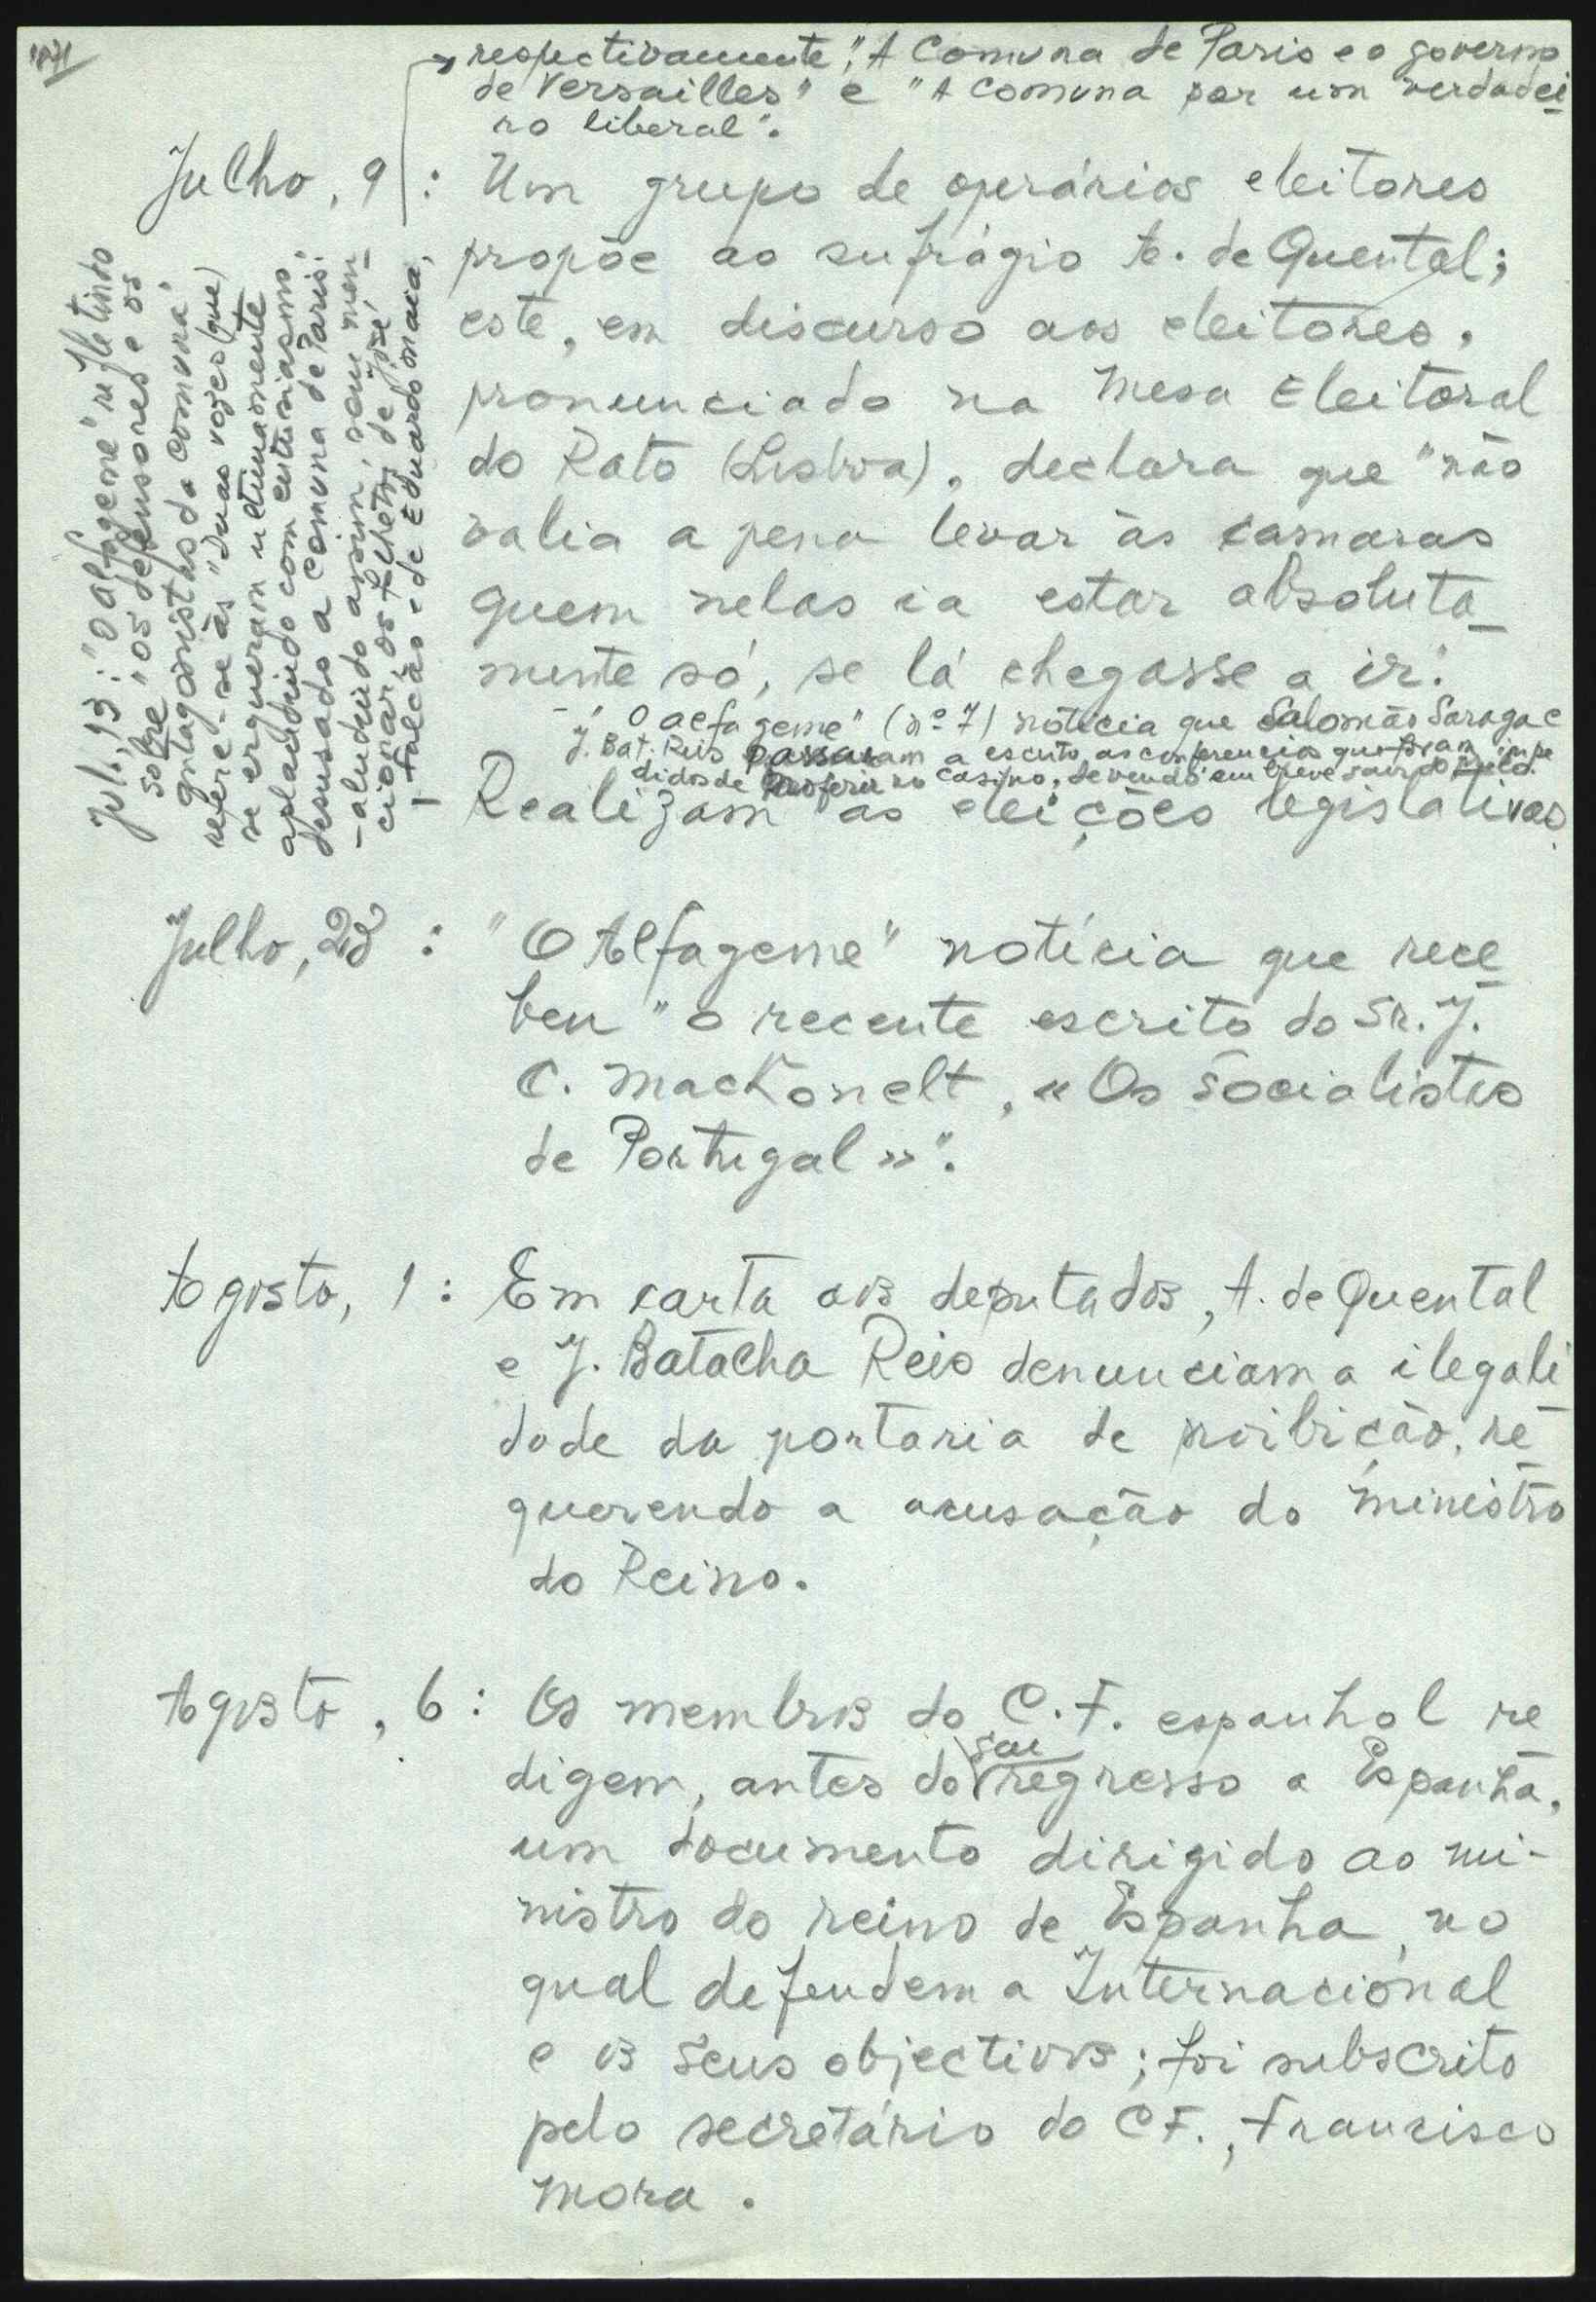 1871
respectivamente, "A Comuna de Paris e o governo
de Versailles" e "A Comuna por um verdadei
ro liberal".
Julho, 9 : Um grupo de operários eleitores
propõe ao sufrágio A. de Quental;
este, em discurso aos eleitores,
pronunciado na Mesa Eleitoral
do Rato (Lisboa), declara que "não
valia a pena levar às camaras
quem nelas ia estar absoluta_
mente só, se lá chegasse a ir."
- "O alfageme" (nº 7) noticia que Salomão Saraga e
J. Bat. Reis passaram a escrito as conferencias que foram impe
didos de proferir no Casino, devendo em breve sair do
Realizam as eleições legislativas.
Jul., 13: "O alfageme" refletindo
sobre "os defensores e os
antagonistas da Comuna",
refere-se às "Duas vozes (que)
se ergueram ultimamente
aplaudindo com entusiasmo,
desusado a Comuna de Paris."
- aludindo assim, sem men_
cionar, os folhetos de José
Falcão e de Eduardo Maia,
Julho, 23 : "O Alfageme" notícia que rece
beu "o recente escrito do Sr. J.
C. MacKonelt, «Os Socialistas
de Portugal»".
Agosto, 1 : Em carta aos deputados, A. de Quental
e J. Batalha Reis denunciam a ilegali
dade da portaria de proibição, re
querendo a acusação do ministro
do Reino.
Agosto, 6 : Os membros do C.F. espanhol re
digem, antes do seu regresso a Espanha,
um documento dirigido ao mi-
nistro do reino de Espanha, no
qual defendem a Internacional
e os seus objectivos; foi subscrito
pelo secretário do CF., Francisco
Mora.